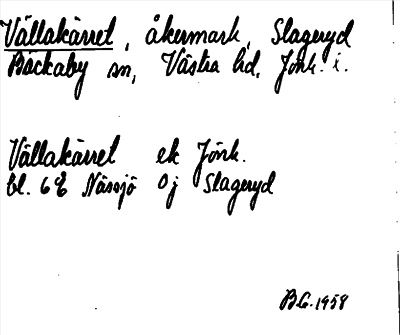 Vällakärret, åkermark, Slageryd
Bäckaby sn, Västra hd, Jönk. l.
Vällakärret ek Jönk.
bl. 6e Nässjö Öj Slageryd
B.G. 1958